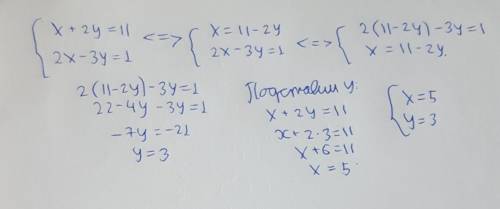 { x + 2y = 11 <=> { x = 11 - 2y <=> { 2(11-2y) - 3y = 1
{ 2x - 3y = 1 { 2x - 3y = 1 { x = 11 - 2y.
2(11-2y) - 3y = 1
22 - 4y - 3y = 1
-7y = -21
y = 3
Подставим y:
x + 2y = 11
x + 2·3 = 11
x + 6 = 11
x = 5
{ x = 5
{ y = 3